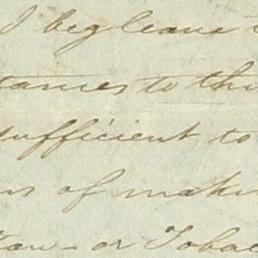 I beg leave
tances to thi
sufficient to
ns of maki
or Tobac